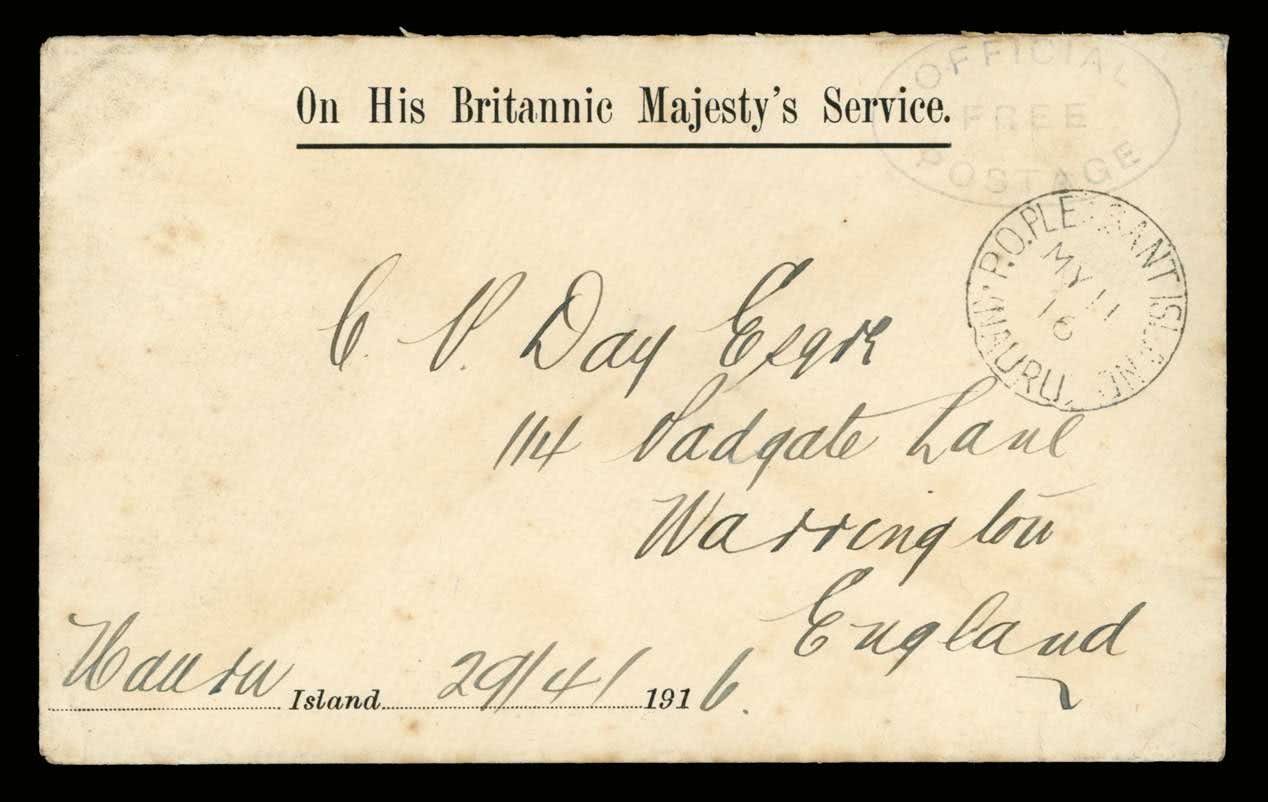 OFFICIAL
FREE
POSTAGE
On His Britannic Majesty's Service.
P.O. PLEASANT ISLAND
NAURU.
MY 11
16
C. V. Day Esqre
114 Padgate Lane
Warrington
England
Nauru Island 29/4/ 1916.